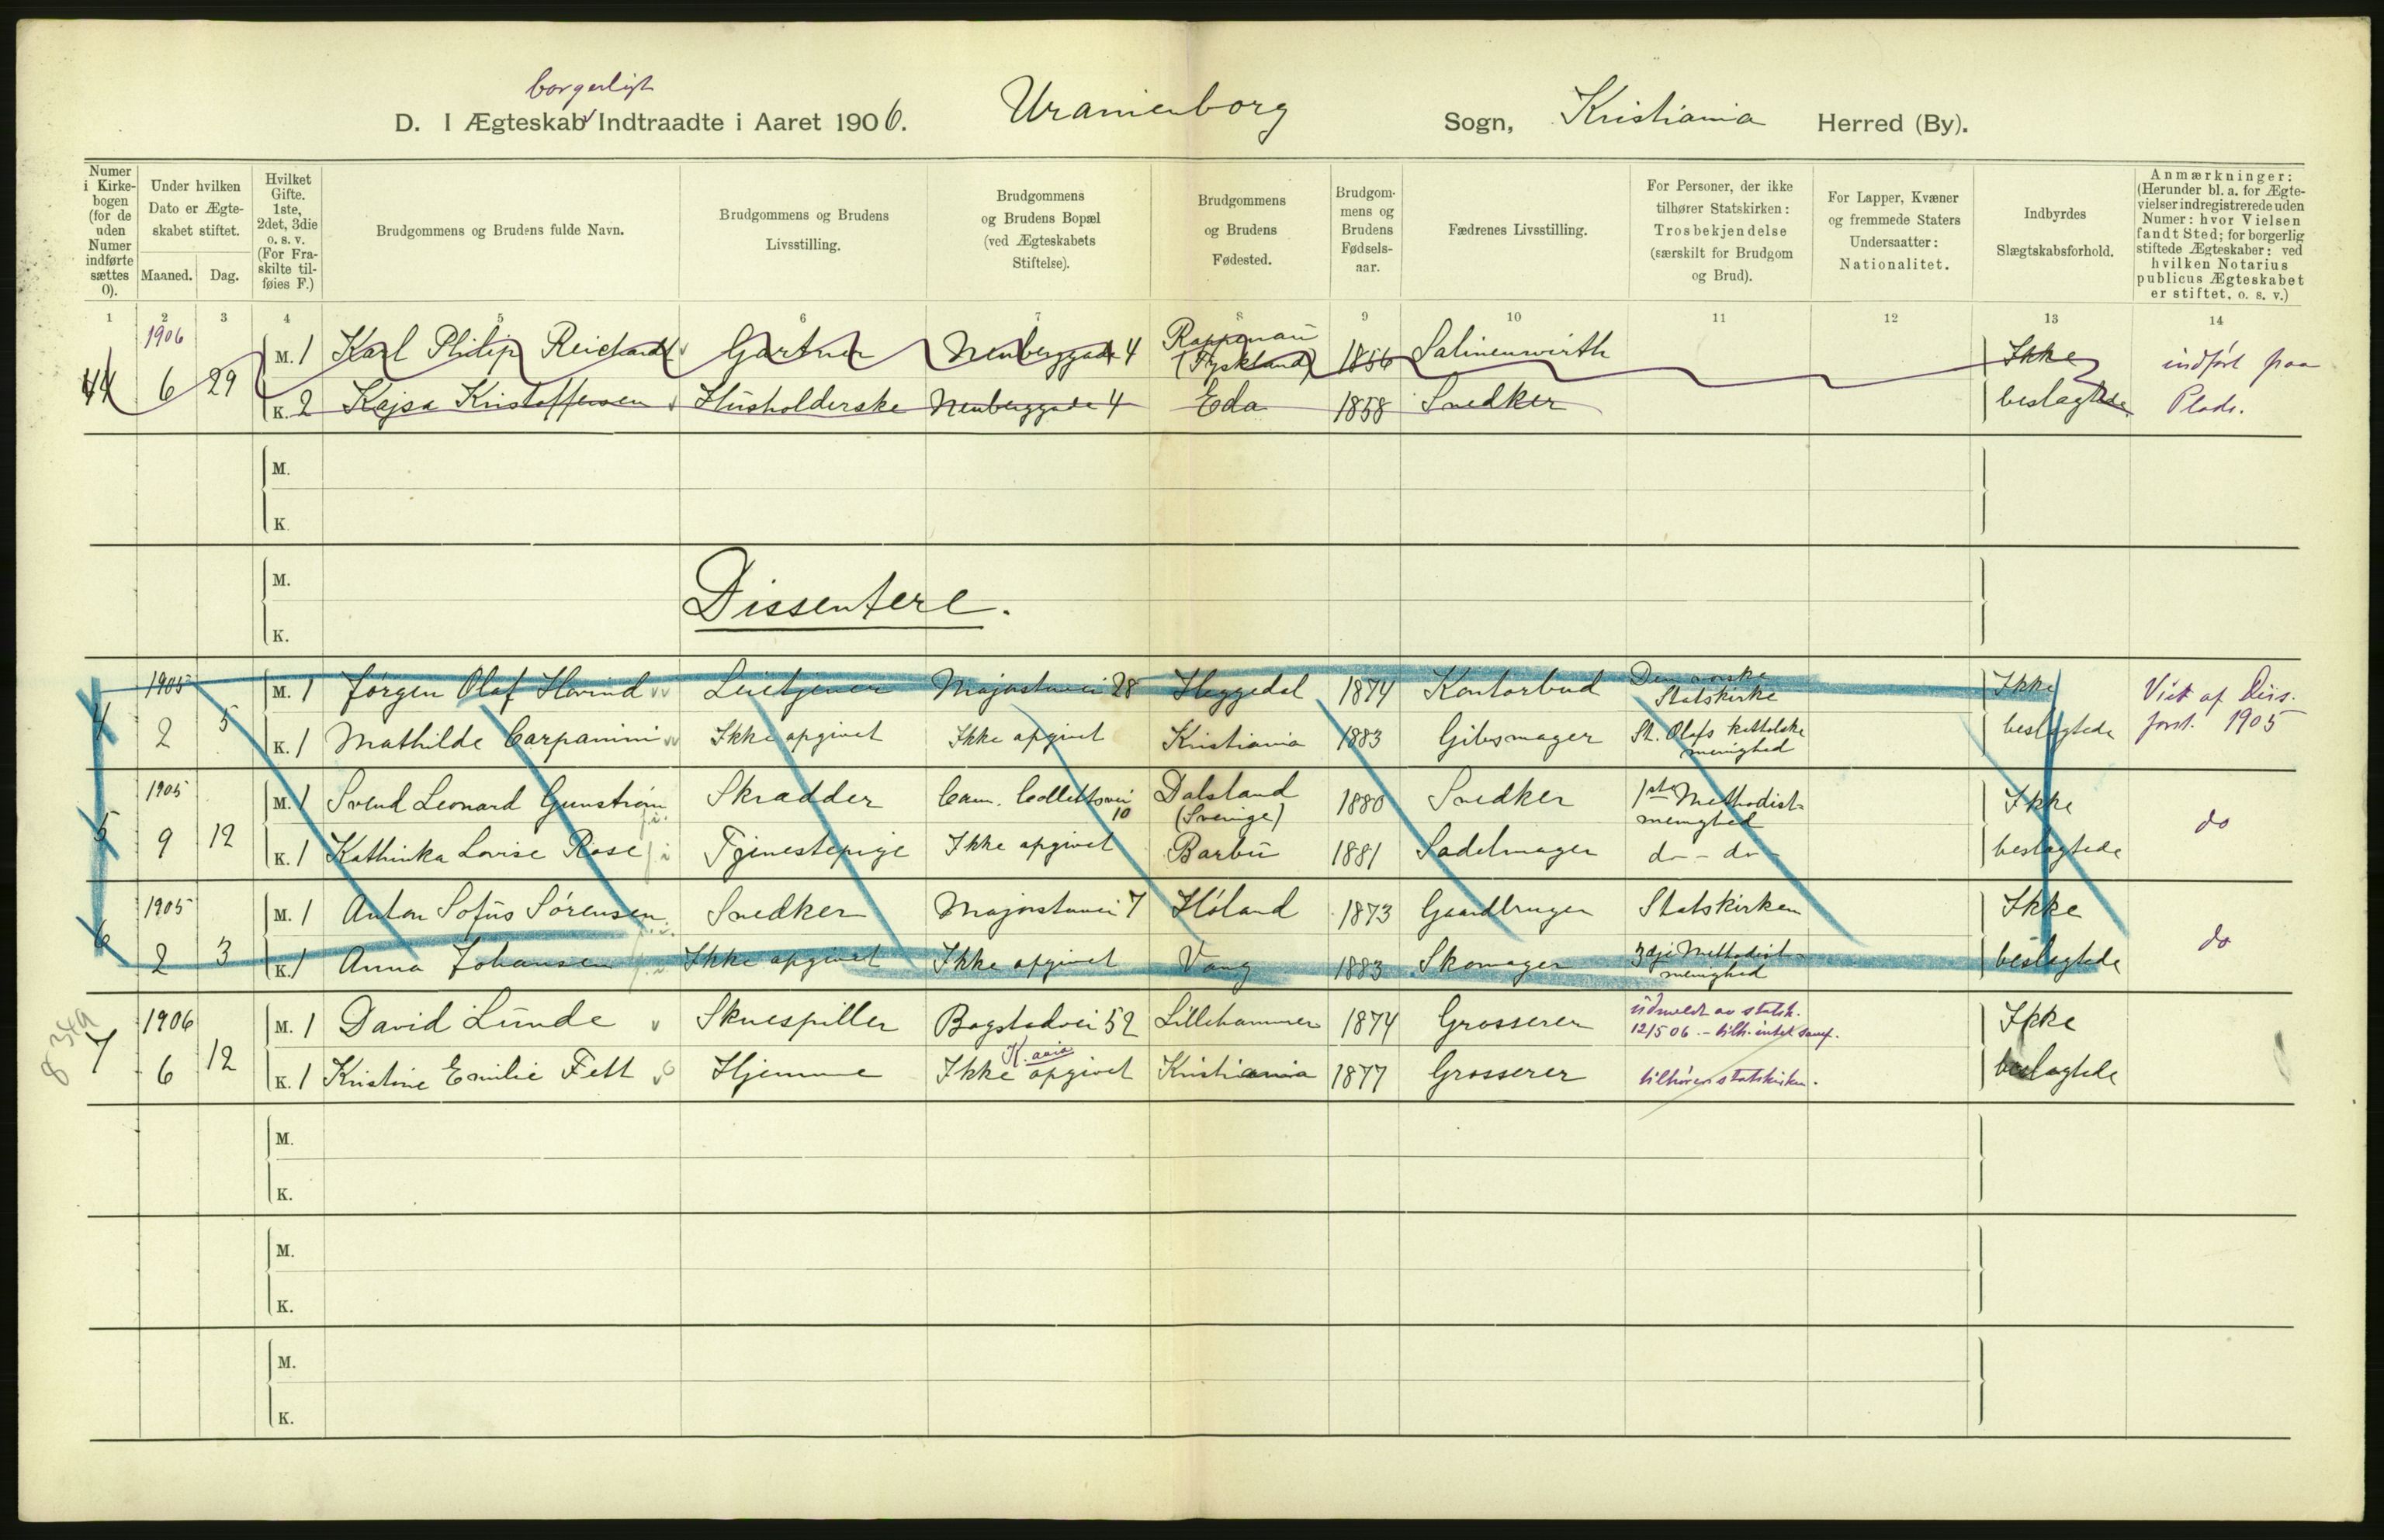 borgerligt
D. I Ægteskab Indtraadte i Aaret 1906. Uranienborg Sogn, Kristiania Herred (By).
Numer i Kirkebogen (for de uden Numer indførte sættes 0).
Under hvilken Dato er Ægteskabet stiftet. Maaned. Dag.
Hvilket Gifte. 1ste, 2det, 3die o. s. v. (For Fraskilte tilføies F.)
Brudgommens og Brudens fulde Navn.
Brudgommens og Brudens Livsstilling.
Brudgommens og Brudens Bopæl (ved Ægteskabets Stiftelse).
Brudgommens og Brudens Fødested.
Brudgommens og Brudens Fødselsaar.
Fædrenes Livsstilling.
For Personer, der ikke tilhører Statskirken: Trosbekjendelse (særskilt for Brudgom og Brud).
For Lapper, Kvæner og fremmede Staters Undersaatter: Nationalitet.
Indbyrdes Slægtskabsforhold.
Anmærkninger: (Herunder bl. a. for Ægtevielser indregistrerede uden Numer: hvor Vielsen fandt Sted; for borgerlig stiftede Ægteskaber: ved hvilken Notarius publicus Ægteskabet er stiftet, o. s. v.)
1 2 3 4 5 6 7 8 9 10 11 12 13 14
1906 M. 1 Karl Philip Reichardt Gartner Neuberggade 4 Rappenau (Tyskland) 1856 Salinenwirth Ikke indført paa
44 6 29 K. 2 Kajsa Kristoffersen Husholderske Neuberggade 4 Eda 1858 Snedker beslægtede Plads.
M.
K.
M.
Dissentere.
K.
1905 M. 1 Jørgen Olaf Hovind Leietjener Majorstuvei 28 Heggedal 1874 Kontorbud Den norske Statskirke Ikke Viet af Diss.
4 2 5 K. 1 Mathilde Carpanini Ikke opgivet Ikke opgivet Kristiania 1883 Gibsmager St. Olafs katholske menighed beslægtede forst. 1905
1905 M. 1 Svend Leonard Gunstrøm Skrædder Cam. Collettsvei 10 Dalsland (Sverige) 1880 Snedker 1ste Methodistmenighed Ikke do
5 9 12 K. 1 Kathinka Lovise Rose Tjenestepige Ikke opgivet Barbu 1881 Sadelmager do - do - beslægtede
1905 M. 1 Anton Sofus Sørensen Snedker Majorstuvei 7 Høland 1873 Gaardbruger Statskirken Ikke do
6 2 3 K. 1 Anna Johansen Ikke opgivet Ikke opgivet Vang 1883 Skomager 3dje Methodistmenighed beslægtede
8349
1906 M. 1 David Lunde Skuespiller Bogstadvei 52 Lillehammer 1874 Grosserer udmeldt av statsk. 12/5 06. - tilh. intet samf. Ikke
7 6 12 K. 1 Kristine Emilie Fett Hjemme Ikke opgivet K.ania Kristiania 1877 Grosserer tilhører statskirken. beslægtede
M.
K.
M.
K.
M.
K.